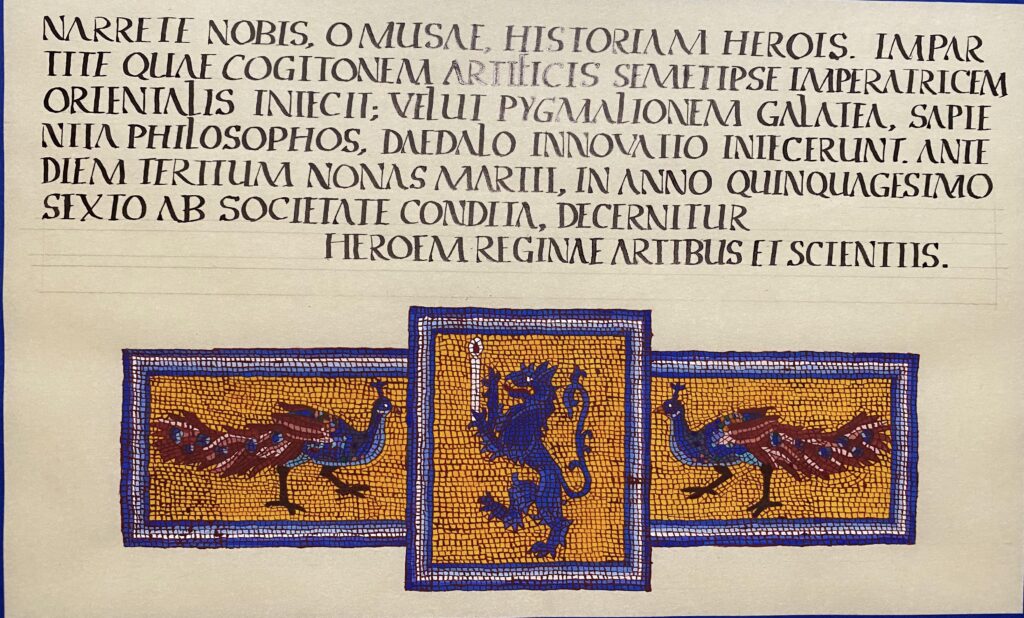 NARRETE NOBIS, O MUSAE, HISTORIAM HEROIS. IMPAR
TITE QUAE COGITONEM ARTIFICIS SEMETIPSE IMPERATRICEM
ORIENTALIS INIECIT; VELUT PYGMALIONEM GALATEA, SAPIE
NTIA PHILOSOPHOS, DAEDALO INNOVATIO INIECERUNT. ANTE
DIEM TERITUM NONAS MARTII, IN ANNO QUINQUAGESIMO
SEXTO AB SOCIETATE CONDITA, DECERNITUR
HEROEM REGINAE ARTIBUS ET SCIENTIIS.